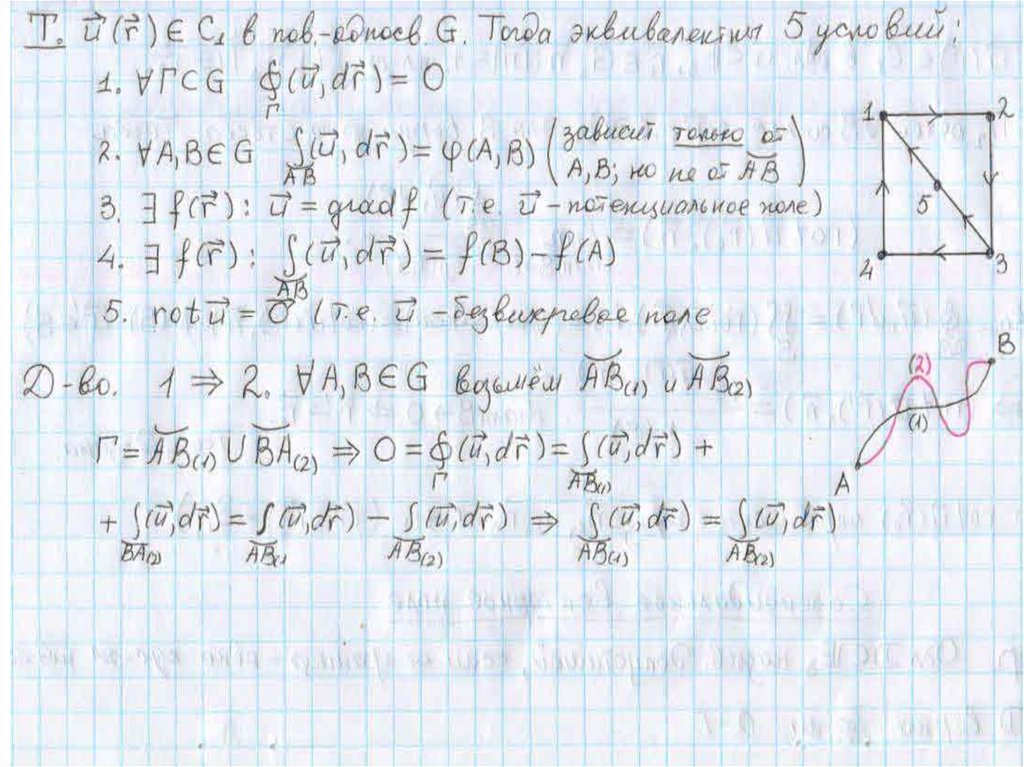 Т. u⃗(r⃗) ∈ C₁ в пов.-односв. G. Тогда эквивалентны 5 условий:
1. ∀Γ⊂G ∮_Γ (u⃗, dr⃗) = 0
2. ∀A,B∈G ∫_{AB} (u⃗, dr⃗) = φ(A,B) (зависит только от A,B; но не от A͡B)
3. ∃ f(r⃗): u⃗ = grad f (т.е. u⃗ - потенциальное поле)
4. ∃ f(r⃗): ∫_{A͡B} (u⃗, dr⃗) = f(B) - f(A)
5. rot u⃗ = 0⃗ (т.е. u⃗ - безвихревое поле
1 2
5
4 3
Д-во. 1 ⇒ 2. ∀A,B∈G возьмём A͡B₍₁₎ и A͡B₍₂₎
Γ = A͡B₍₁₎ ∪ B͡A₍₂₎ ⇒ 0 = ∮_Γ (u⃗, dr⃗) = ∫_{A͡B₍₁₎} (u⃗, dr⃗) +
+ ∫_{B͡A₍₂₎} (u⃗, dr⃗) = ∫_{A͡B₍₁} (u⃗, dr⃗) - ∫_{A͡B₍₂₎} (u⃗, dr⃗) ⇒ ∫_{A͡B₍₁₎} (u⃗, dr⃗) = ∫_{A͡B₍₂₎} (u⃗, dr⃗)
B
(2)
(1)
A